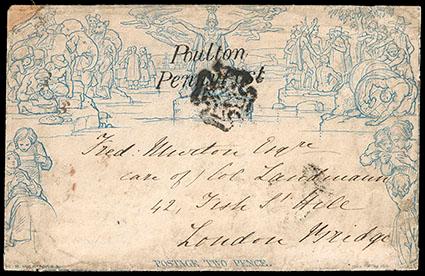 Poulton
Penny Post
Fred: Newton Esqre
care of Col Landmann
42, Fish St Hill
London Bridge
POSTAGE TWO PENCE.